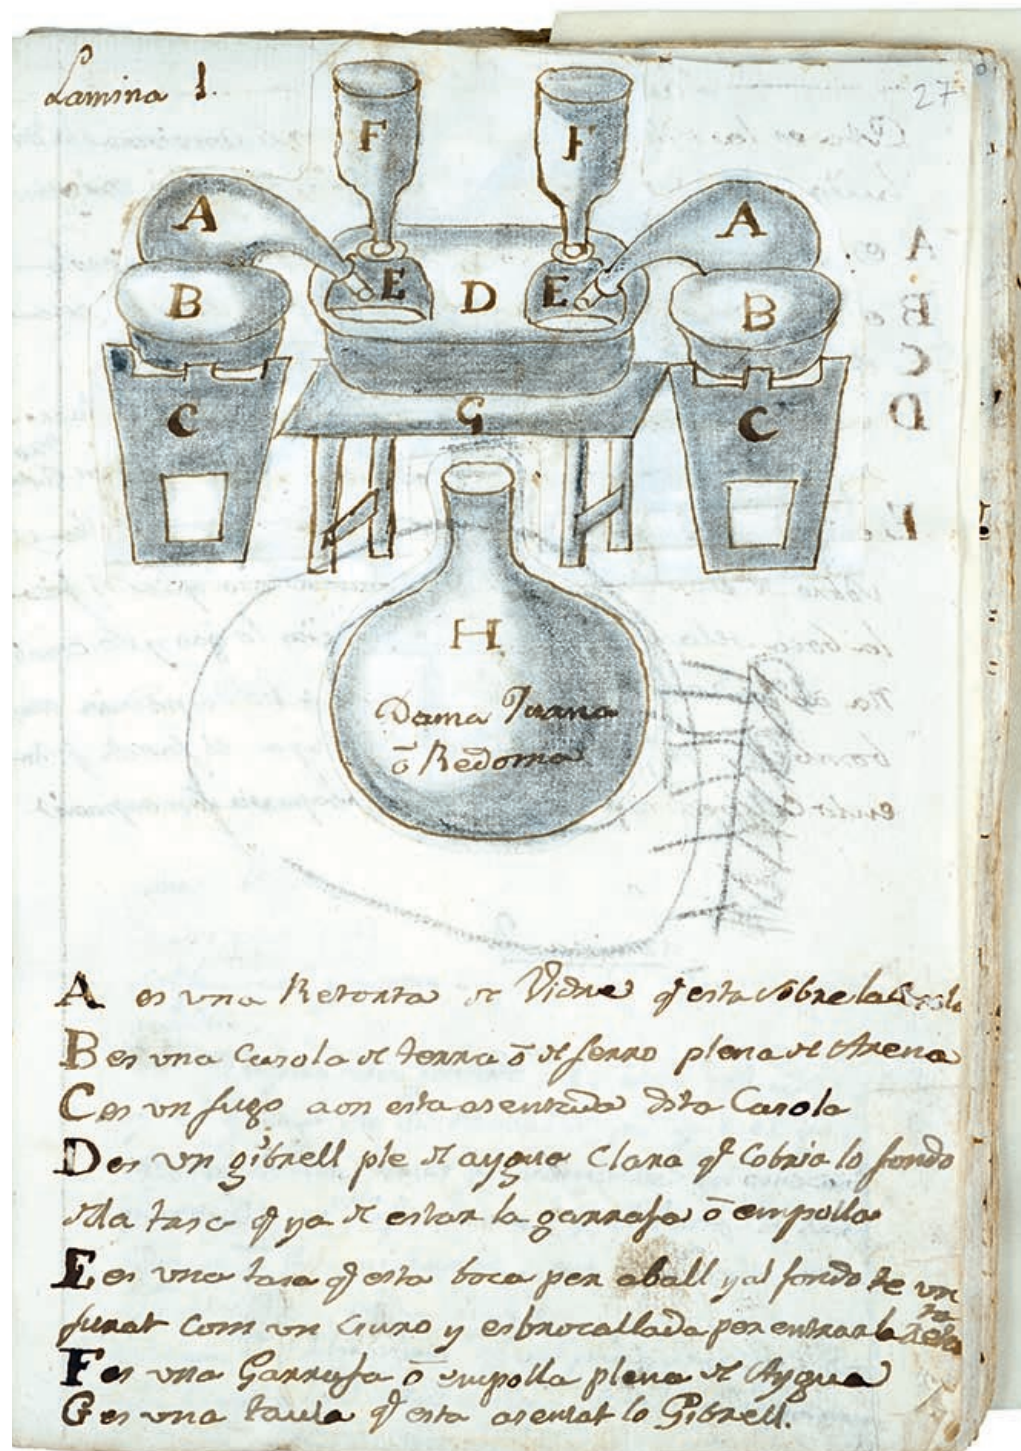 Lamina 1.
27
F F
A A
E D E
B B
C G C
H
Dama Juana
ō Redoma
A es una Retorta de Vidre q̃ esta sobre la Casola
B es una Casola de terra ō de ferro plena de Arena
C es un fugo aon esta asentada dita Casola
D es un gibrell ple de aygua Clara q̃ Cobria lo fondo
de la tasa q̃ ya de estar la garrafa ō empolla
E es una tasa q̃ esta boca per aball y al fondo te un
furat com un Curo y esbrocallada per entrar la
F es una Garrafa ō empolla plena de Aygua
G es una taula q̃ esta asentat lo Gibrell.